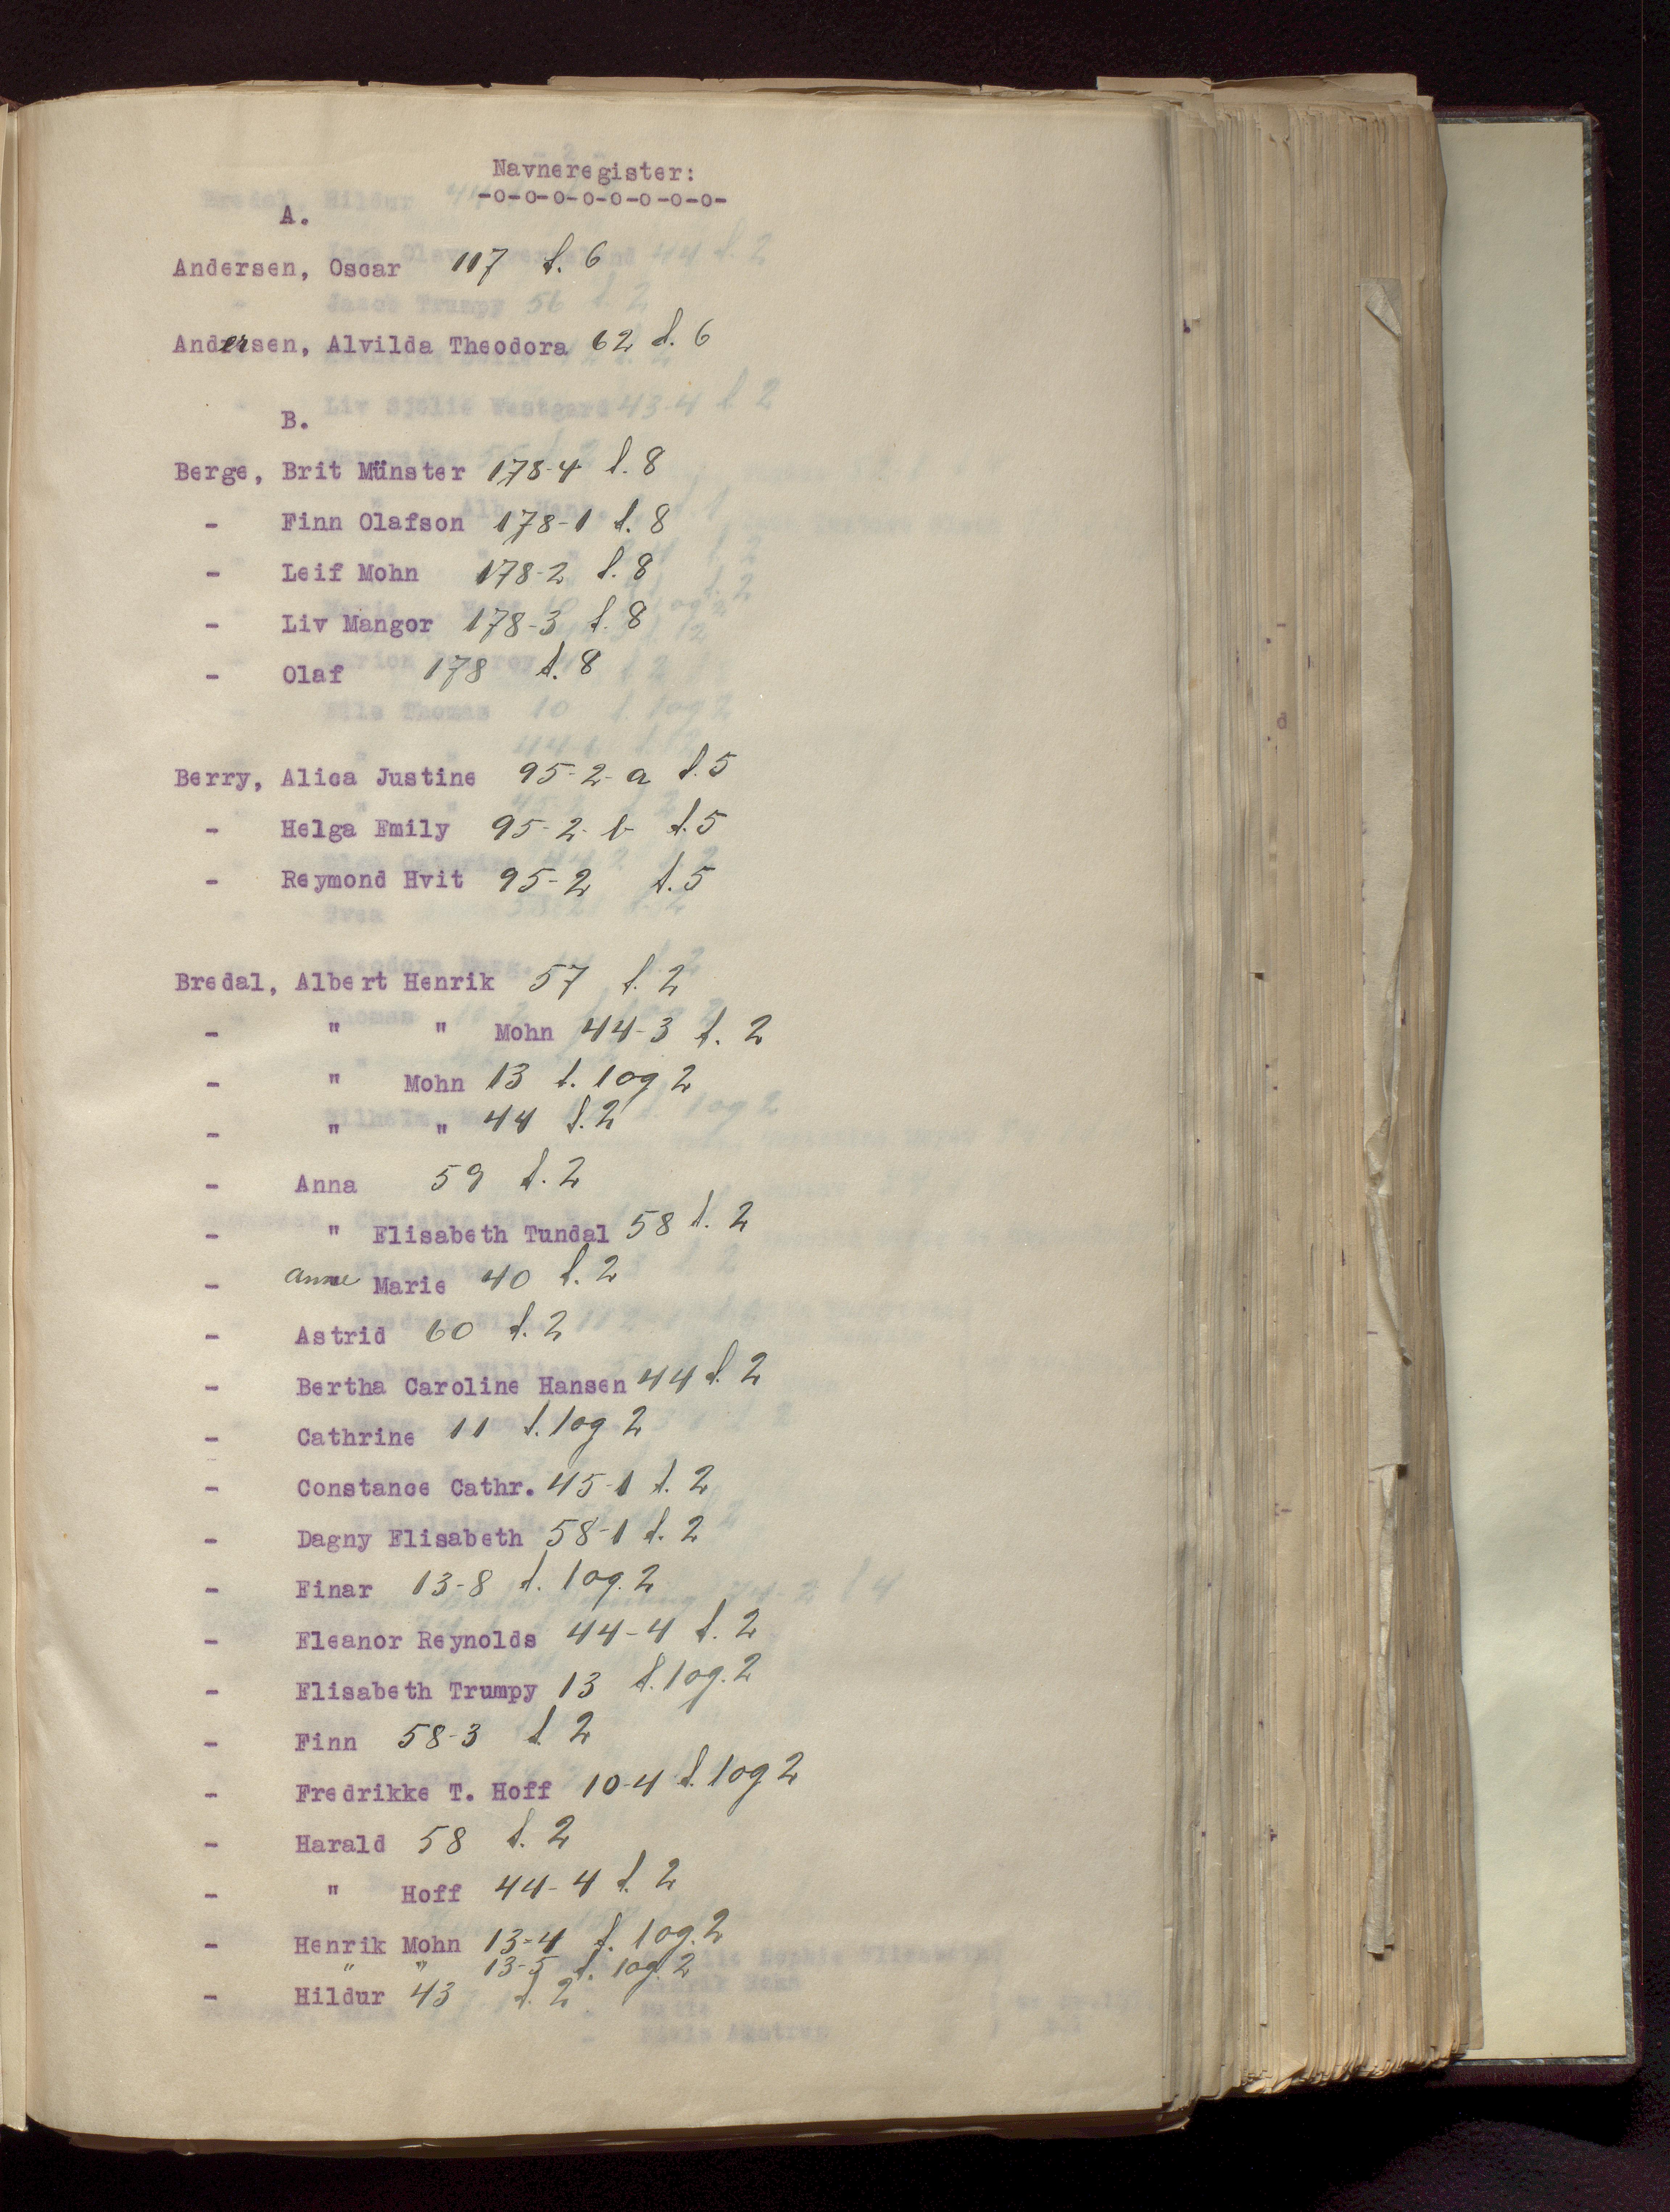 Navneregister:
-o-o-o-o-o-o-o-o-
A.
Andersen, Oscar 117 t. 6
Andersen, Alvilda Theodora 62 t. 6
B.
Berge, Brit Münster 178-4 t. 8
- Finn Olafson 178-1 t. 8
- Leif Mohn 178-2 t. 8
- Liv Mangor 178-3 t. 8
- Olaf 178 t. 8
Berry, Alica Justine 95-2-a t. 5
- Helga Emily 95-2-b t. 5
- Reymond Hvit 95-2 t. 5
Bredal, Albert Henrik 57 t. 2
- " " Mohn 44-3 t. 2
- " Mohn 13 t. 1 og 2
- " " 44 t. 2
- Anna 59 t. 2
- " Elisabeth Tundal 58 t. 2
- Anne Marie 40 t. 2
- Astrid 60 t. 2
- Bertha Caroline Hansen 44 t. 2
- Cathrine 11 t. 1 og 2
- Constance Cathr. 45-1 t. 2
- Dagny Elisabeth 58-1 t. 2
- Einar 13-8 t. 1 og. 2
- Eleanor Reynolds 44-4 t. 2
- Elisabeth Trumpy 13 t. 1 og. 2
- Finn 58-3 t. 2
- Fredrikke T. Hoff 10-4 t. 1 og 2
- Harald 58 t. 2
- " Hoff 44-4 t. 2
- Henrik Mohn 13-4 t. 1 og. 2
" " 13-5 t. 1 og. 2
- Hildur 43 t. 2